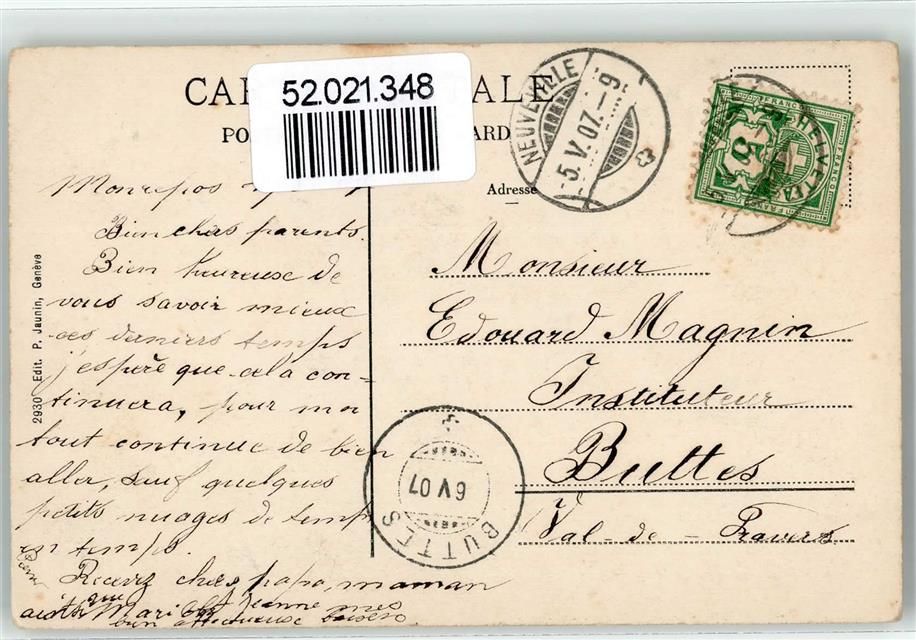 52.021.348
NEUVEVILLE
5.V.07.-9
HELVETIA
FRANCO
5
Adresse
2930 Edit. P. Jaunin, Genève
Monrepos
Bien chers parents.
Bien heureuse de
vous savoir mieux
ces derniers temps
j'espère que cela con-
tinuera, pour moi
tout continue de bien
aller, sauf quelques
petits nuages de temps
en temps.
Recevez chers papa, maman
que
Marie et Jeanne mes
bien affectueux baisers
Monsieur
Edouard Magnin
Instituteur
Buttes
Val-de-Travers
6 V 07
BUTTES